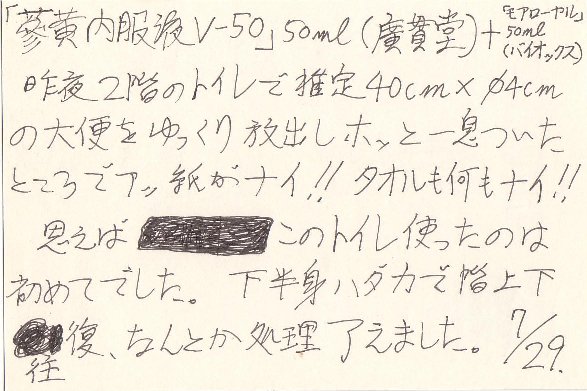 「蔘黄内服液V-50」50ml(廣貫堂)+「モアローヤル」50ml(バイオックス)
昨夜2階のトイレで推定40cm×φ4cm
の大便をゆっくり放出しホッと一息ついた
ところでアッ紙がナイ!! タオルも何もナイ!!
思えば このトイレ使ったのは
初めてでした。 下半身ハダカで階上下
往復、なんとか処理了えました。 7/29.